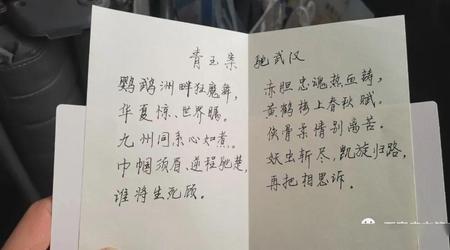 青玉案
鹦鹉洲畔狂魔舞，
华夏惊、世界瞩。
九州同系心知煮。
巾帼须眉、逆程驰楚，
谁将生死顾。
驰武汉
赤胆忠魂热血铸，
黄鹤楼上春秋赋。
侠骨柔情别离苦。
妖虫斩尽，凯旋归路，
再把相思诉。